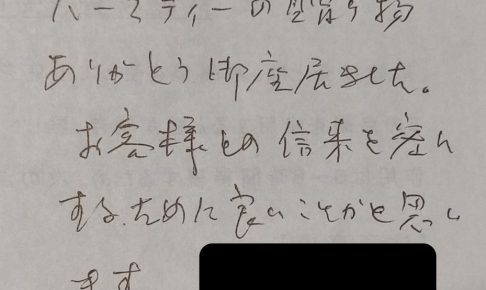 バースディーの贈り物
ありがとう御座居ました。
お客様との信来を密に
するために良いことかと思い
ます